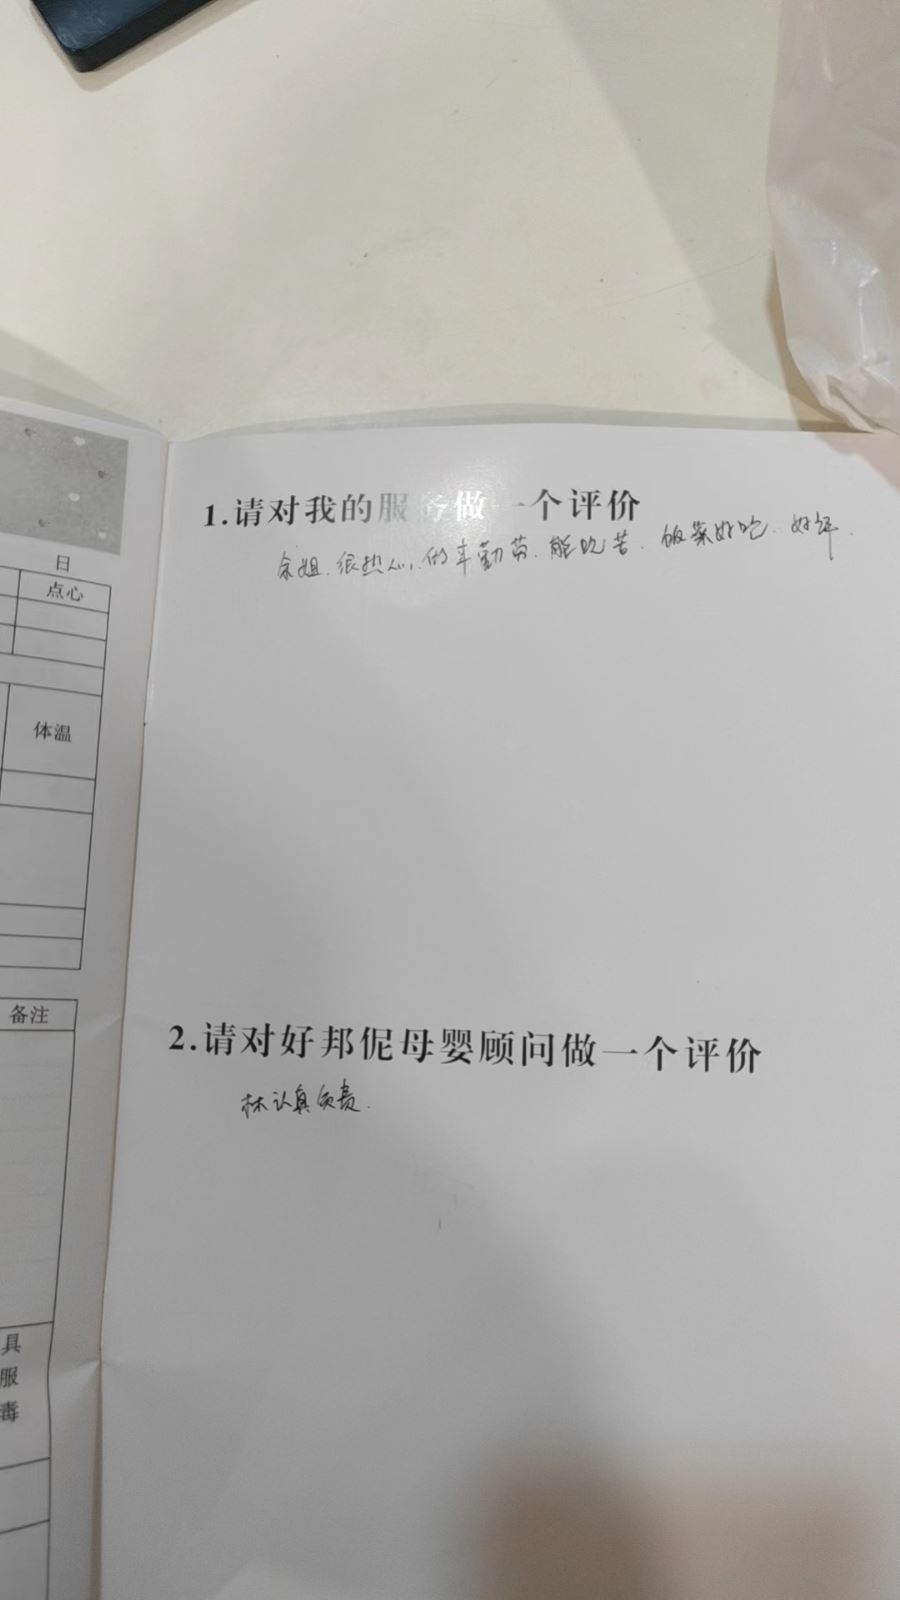 日
点心
体温
备注
具
服
毒
1.请对我的服务做一个评价
余姐.很热心,做事勤劳.能吃苦.饭菜好吃.好评.
2.请对好邦伲母婴顾问做一个评价
林认真负责.